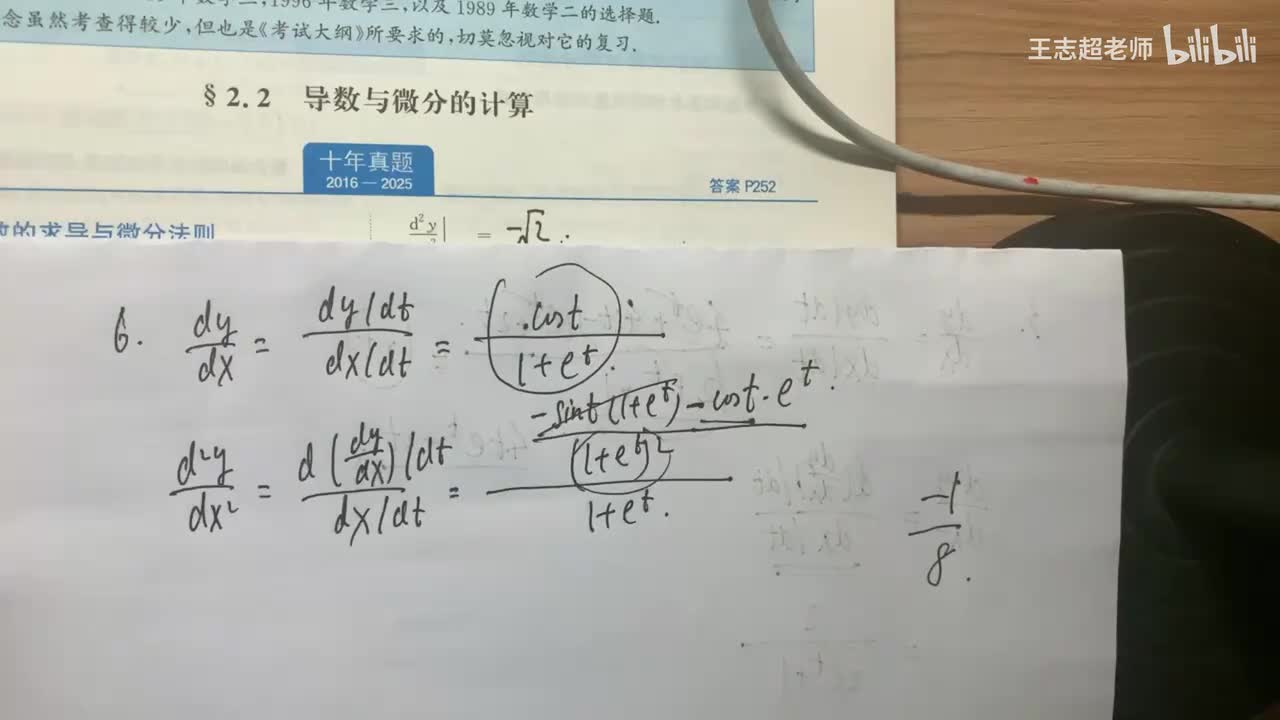 年数学二,1996年数学三,以及1989年数学二的选择题.
念虽然考查得较少,但也是《考试大纲》所要求的,切莫忽视对它的复习.
王志超老师 bilibili
§2.2 导数与微分的计算
十年真题
2016—2025
答案 P252
的求导与微分法则
d²y = -√2.
6. dy/dx = (dy/dt)/(dx/dt) = cost/(1+e^t).
d²y/dx² = (d(dy/dx)/dt)/(dx/dt) = ((-sint(1+e^t)-cost·e^t)/(1+e^t)²)/(1+e^t).
-1/8.